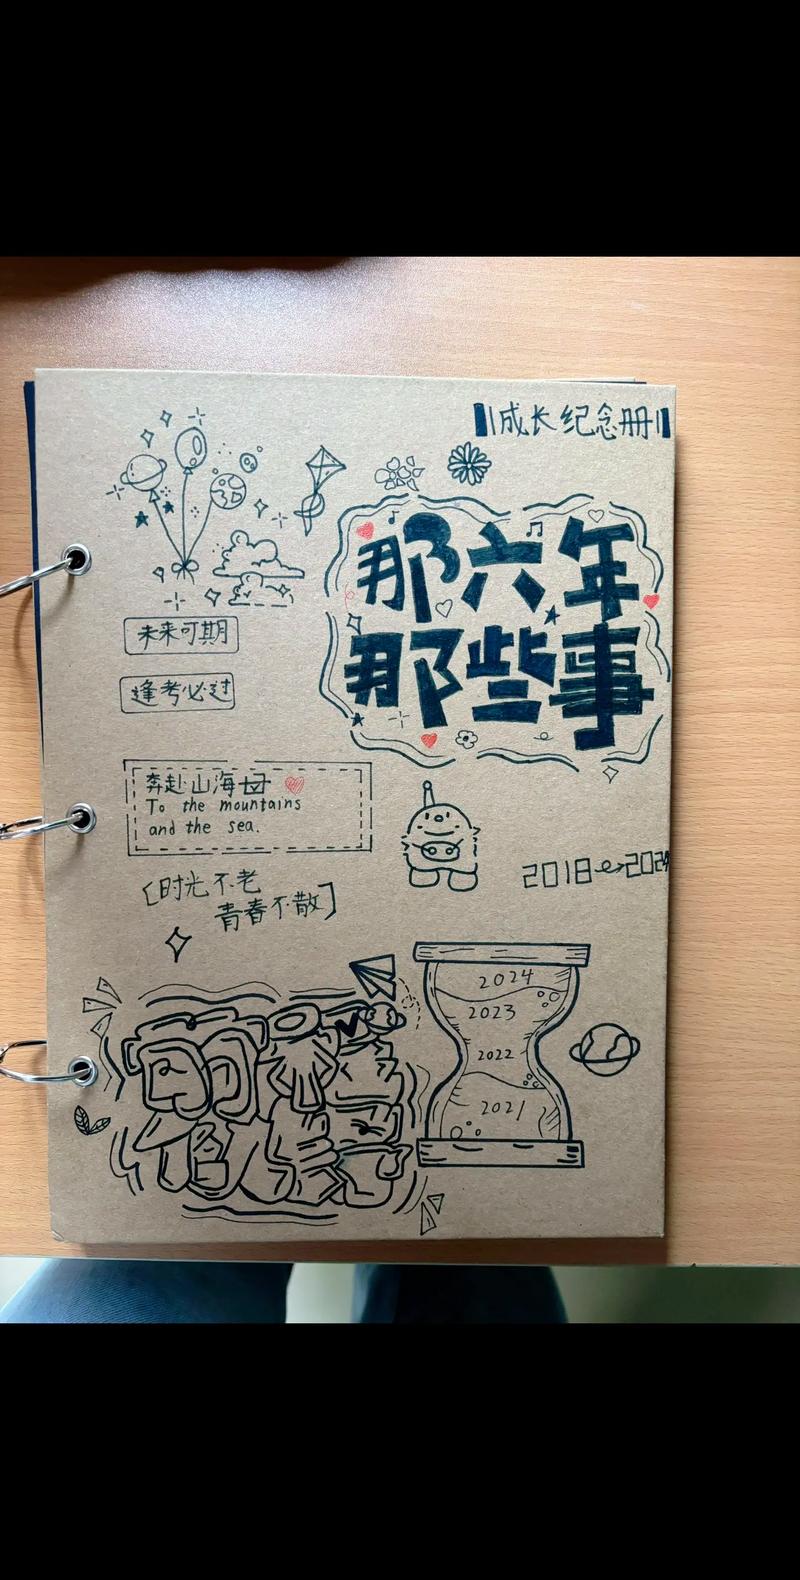 成长纪念册
那六年
那些事
未来可期
逢考必过
奔赴山海
To the mountains
and the sea.
2018→2024
[时光不老
青春不散]
2024
2023
2022
2021